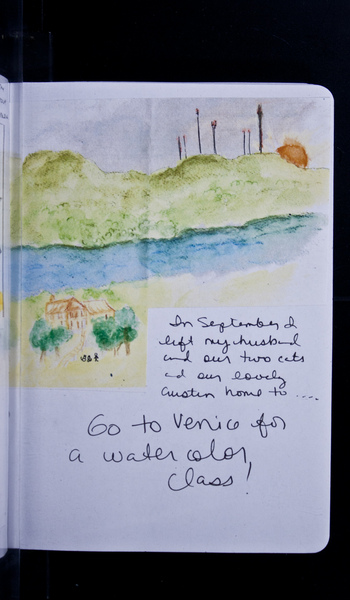 In September I
left my husband
and our two cats
ad our lovely
Austin home to ....
Go to Venice for
a watercolor
class!